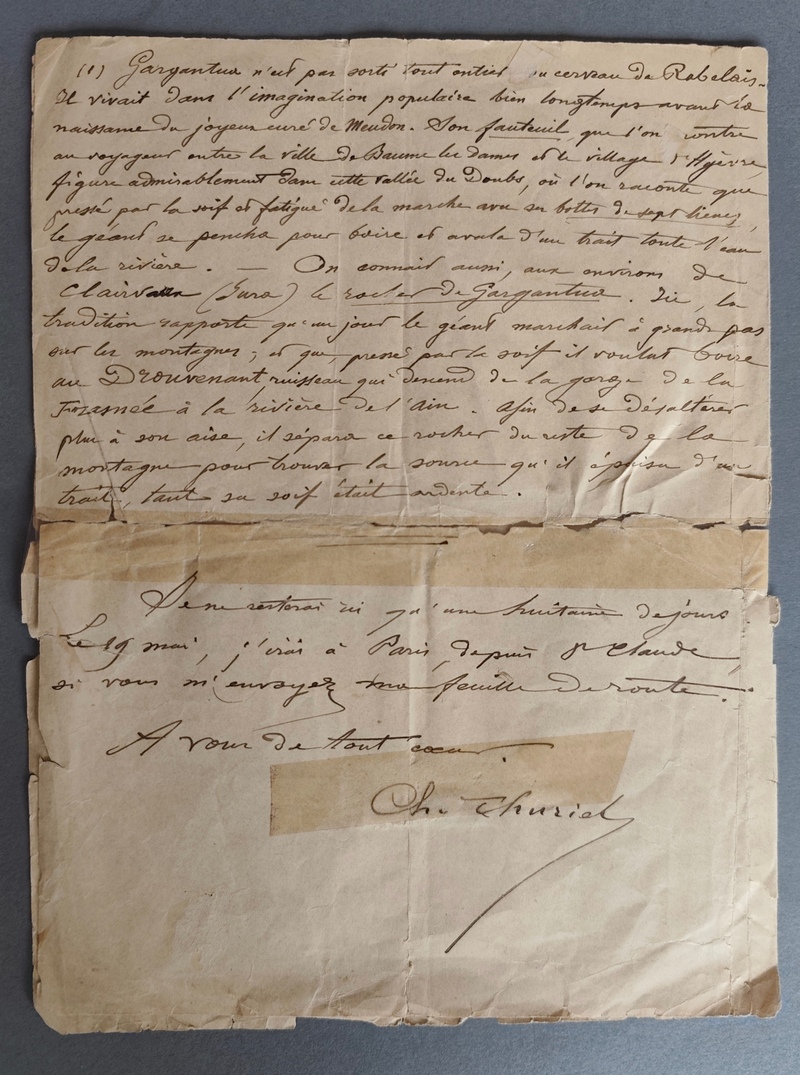 (1) Gargantua n'est pas sorti tout entier du cerveau de Rabelais.
Il vivait dans l'imagination populaire bien longtemps avant la
naissance du joyeux curé de Meudon. Son fauteuil, que l'on montre
au voyageur entre la ville de Baume les dames et le village d'Hyèvre,
figure admirablement dans cette vallée du Doubs, où l'on raconte que
pressé par la soif et fatigué de la marche avec ses bottes de sept lieues,
le géant se pencha pour boire et avala d'un trait toute l'eau
de la rivière. — On connait aussi, aux environs de
Clairvaux (Jura) le rocher de Gargantua. Ici, la
tradition rapporte qu'un jour le géant marchait à grands pas
sur les montagnes; et que, pressé par la soif il voulut boire
au Drouvenant, ruisseau qui descend de la gorge de la
Frasnée à la rivière de l'Ain. Afin de se désaltérer
plus à son aise, il sépara ce rocher du reste de la
montagne pour trouver la source qu'il épuisa d'un
trait, tant sa soif était ardente.
Je ne resterai ici qu'une huitaine de jours
Le 19 mai, j'irai à Paris, depuis St Claude,
si vous m'envoyez ma feuille de route.
A vous de tout cœur.
Ch. Thuriet